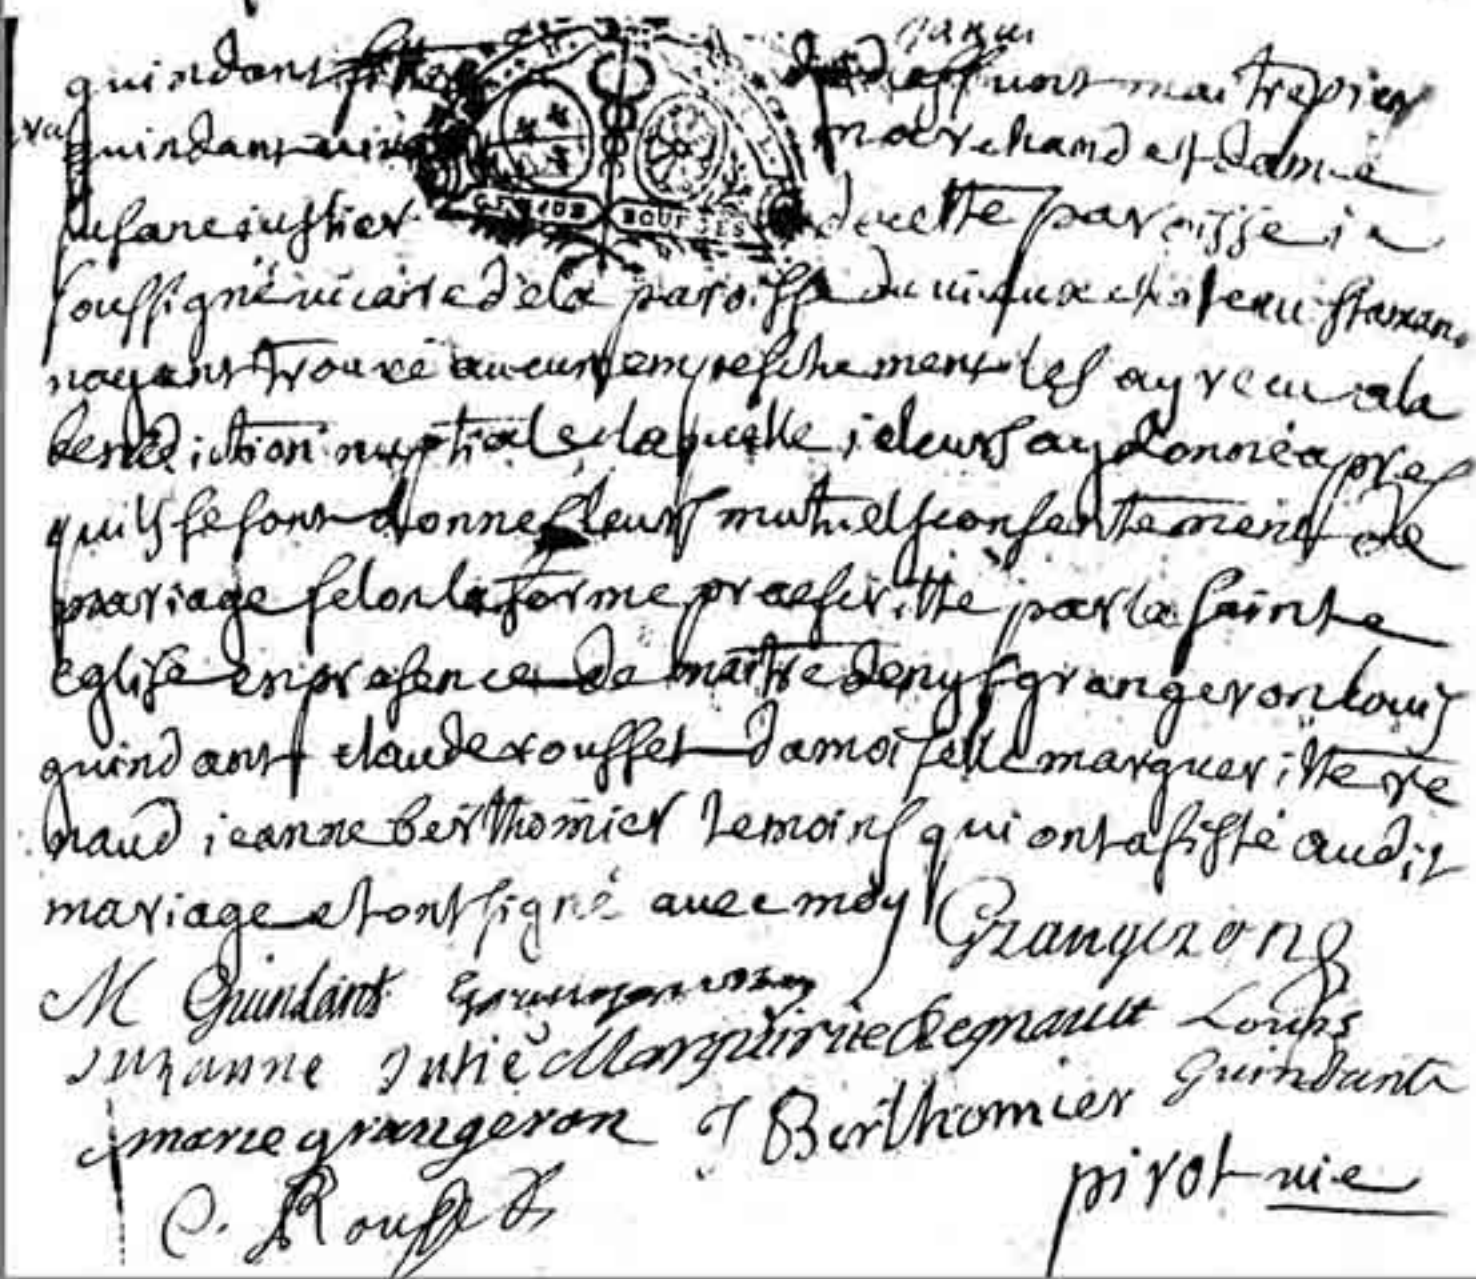 quindant deffunt maitre pier
quindant vivant marchand et dame
susane justier de cette paroisse je
soussigné vicaire de la paroisse du vieux chasteau st aman
nayant trouvé aucun empeschement les ay receu a la
benediction nuptiale laquelle je leurs ay donné apres
quils se sont donnes leurs mutuels consentement de
mariage selon la forme praescritte par la sainte
eglise en presence de maitre denys grangeron louis
quindant claude rousset damoiselle margueritte re
naud jeanne berthomier temoins qui ont asisté audit
mariage et ont signé avec moy Grangeron
M Guindant
Suzanne Jutié Marguirite Regnault Louis
Guindant
marie grangeron J Berthomier
pivot vic
C. Rousset